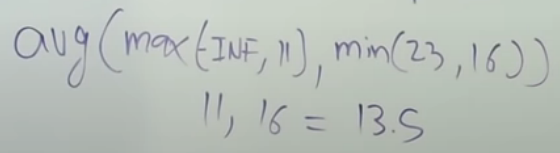 avg(max(-INF, 11), min(23, 16))
11, 16 = 13.5